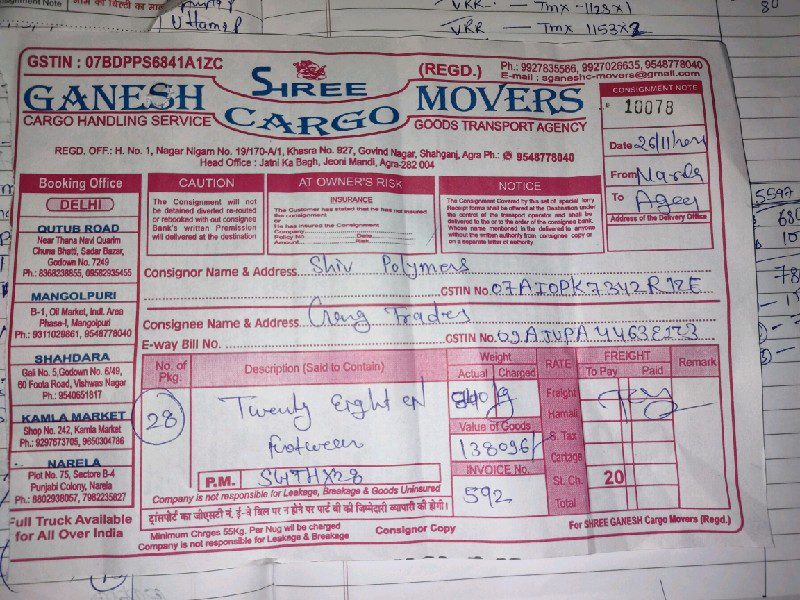 VRR — Tmx 1153x2
GSTIN : 07BDPPS6841A1ZC
(REGD.)
Ph.: 9927835586, 9927026635, 9548778040
E-mail : sganeshc-movers@gmail.com
SHREE
GANESH CARGO MOVERS
CARGO HANDLING SERVICE
GOODS TRANSPORT AGENCY
REGD. OFF.: H. No. 1, Nagar Nigam No. 19/170-A/1, Khasra No. 827, Govind Nagar, Shahganj, Agra Ph.: 9548778040
Head Office : Jatni Ka Bagh, Jeoni Mandi, Agra-282 004
CONSIGNMENT NOTE
10078
Date 26/11/
From Narela
To Agra
Address of the Delivery Office
Booking Office
DELHI
QUTUB ROAD
Near Thana Navi Quarim
Chuna Bhatti, Sadar Bazar,
Godown No. 7249
Ph.: 8368238855, 09582935455
MANGOLPURI
B-1, Oil Market, Indl. Area
Phase-I, Mangolpuri
Ph.: 9311029861, 9548778040
SHAHDARA
Gali No. 5,Godown No. 6/49,
60 Foota Road, Vishwas Nagar
Ph.: 9540651817
KAMLA MARKET
Shop No. 242, Kamla Market
Ph.: 9297673705, 9650304786
NARELA
Plot No. 75, Sectore B-4
Punjabi Colony, Narela
Ph.: 8802938057, 7982235827
Full Truck Available
for All Over India
CAUTION
The Consignment will not
be detained diverted re-routed
or rebooked with out consignee
Bank's written Premission
will delivered at the destination
AT OWNER'S RISK
INSURANCE
The Customer has stated that he has not insured
the consignment
or
He has insured the Consignment
Company
Policy No. Date
Amount Risk
NOTICE
The Consignment Covered by the set of special lorry
Receipt forms shall be offered at the Destination under
the control of the transport operator and shall be
delivered to the or order of the consignee bank.
Whose name mentioned the delivered to anyone
without the written authority from consignee copy or
on a separate letter of authority.
Consignor Name & Address Shiv Polymers
GSTIN No. 07AIOPK7342R1ZE
Consignee Name & Address Garg Traders
E-way Bill No.
GSTIN No.
No. of
Pkg.
Description (Said to Contain)
Weight
Actual Charged
RATE
FREIGHT
To Pay Paid
Remark
28
Twenty Eight
footwear
840 kg
Freight
Hamali
S. Tax
Cartage
St. Ch. 20
Total
Value of Goods
138096/
INVOICE No.
592
P.M.
Company is not responsible for Leakage, Breakage & Goods Uninsured
ट्रांसपोर्ट का जीएसटी नं. ई-वे बिल पर न होने पर पार्ट बी की जिम्मेदारी व्यापारी की होगी।
Minimum Chrges 55Kg. Par Nug will be charged
Company is not responsible for Leakage & Breakage
Consignor Copy
For SHREE GANESH Cargo Movers (Regd.)